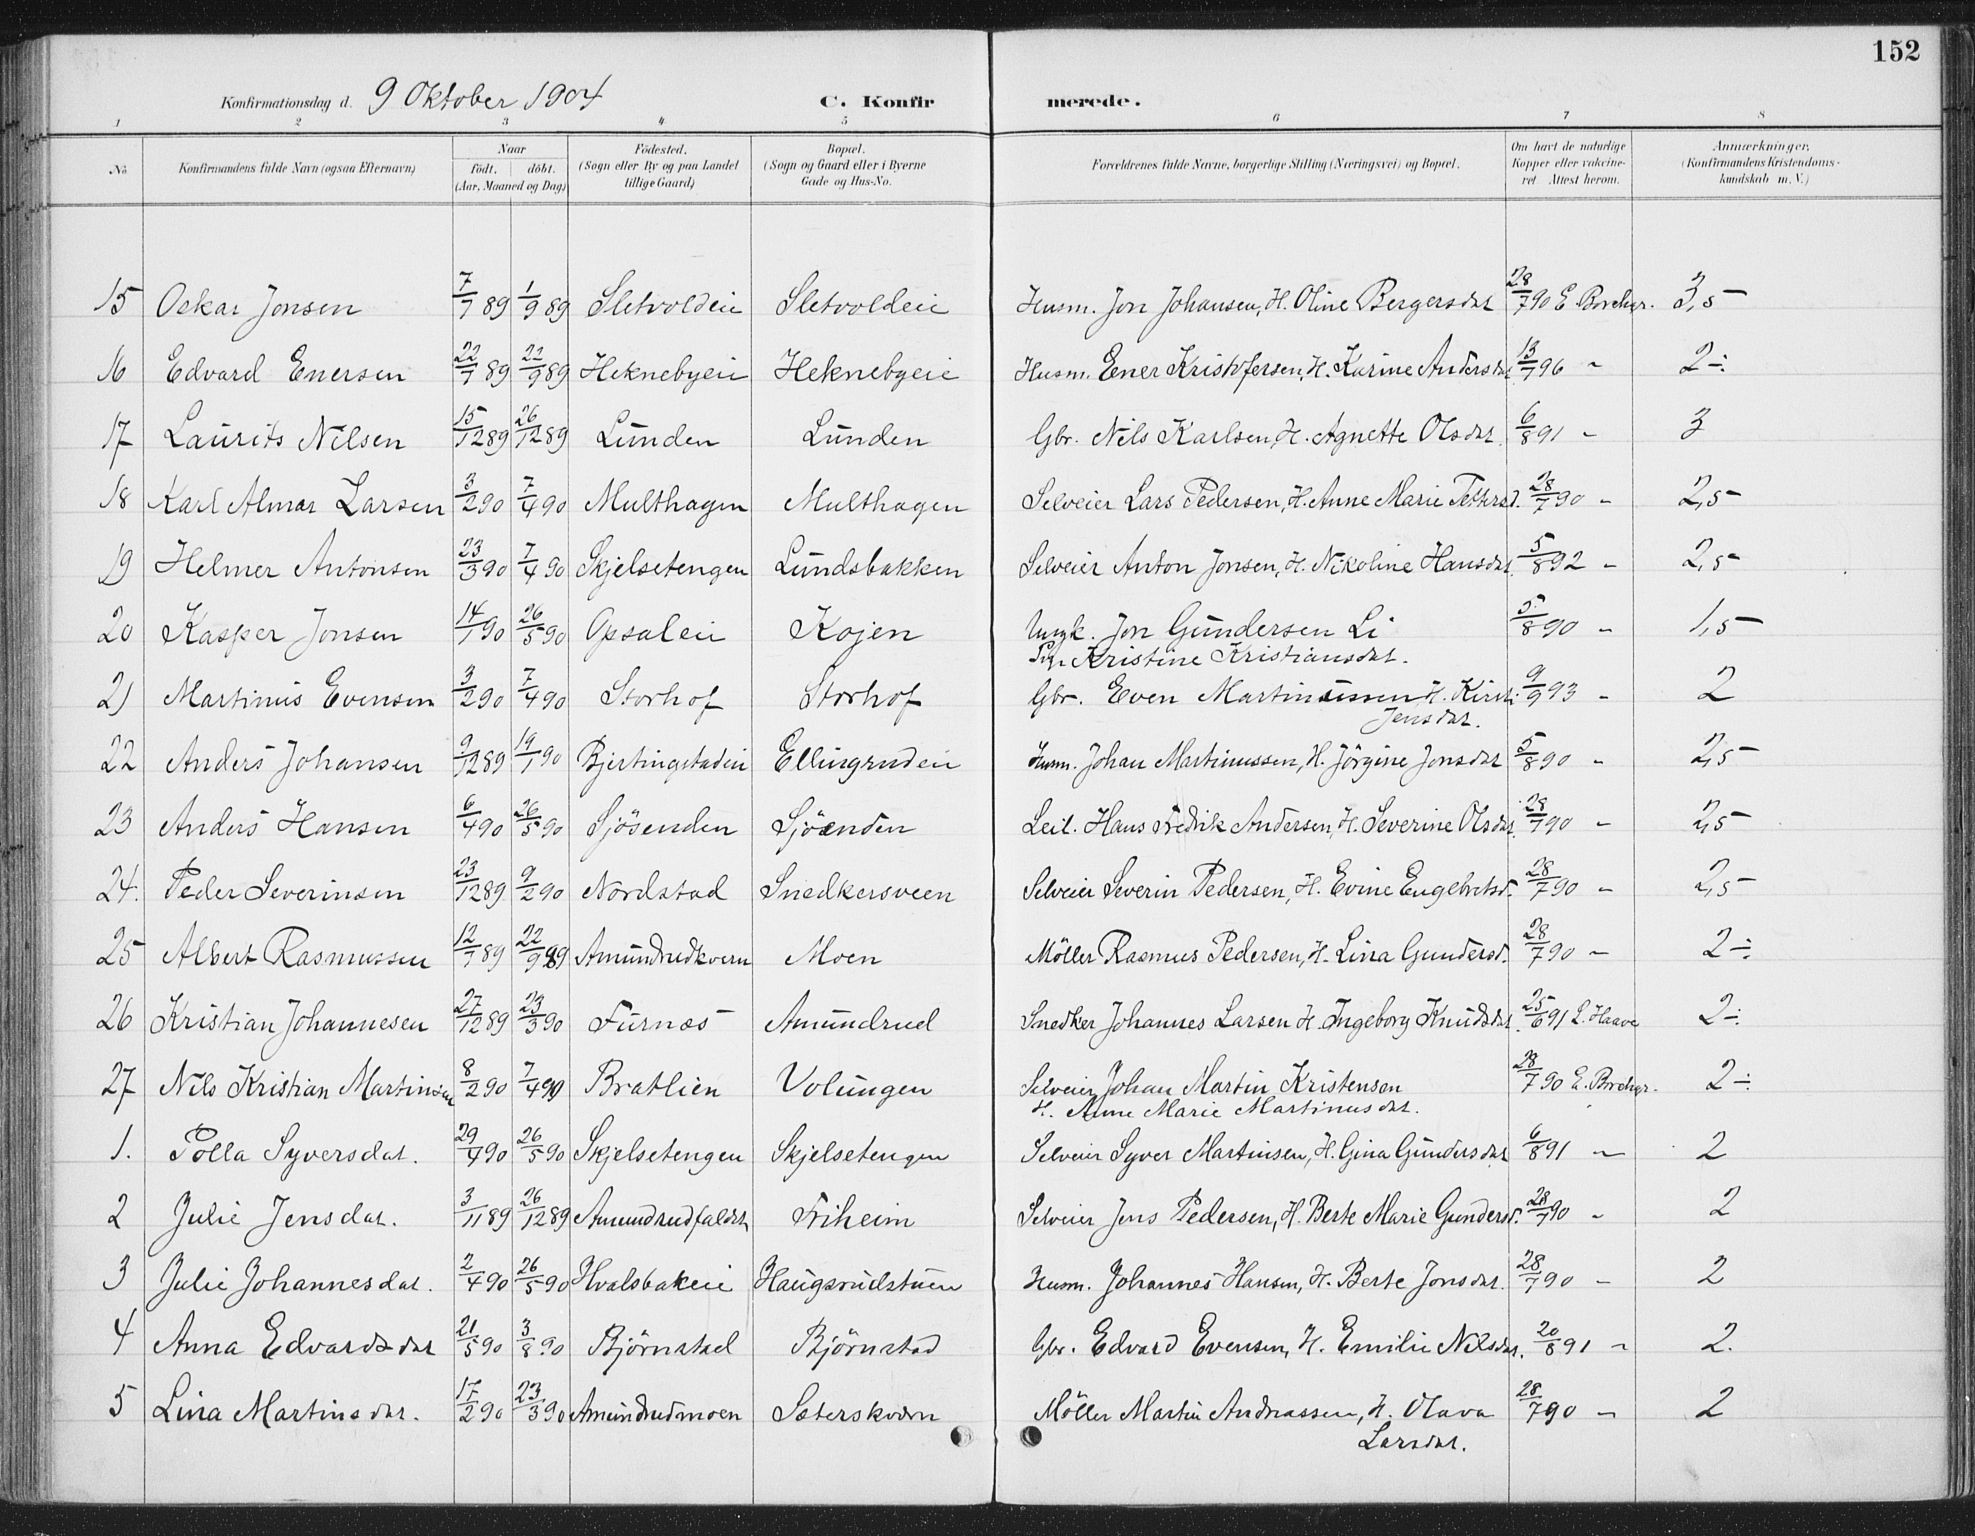 152
Konfirmationsdag d. 9 Oktober 1904 C. Konfirmerede.
1 2 3 4 5 6 7 8
No Konfirmandens fulde Navn (ogsaa Efternavn) Naar födt. döbt. (Aar, Maaned og Dag) Födested. (Sogn eller By og paa Landet tillige Gaard) Bopæl. (Sogn og Gaard eller i Byerne Gade og Hus-No. Forældrenes fulde Navne, borgerlige Stilling (Næringsvei) og Bopæl. Om havt de naturlige Kopper eller vakcineret. Attest herom. Anmærkninger. (Konfirmandens Kristendomskundskab m. V.)
15 Oskar Jonsen 7/7 89 1/9 89 Sletvoldeie Sletvoldeie Husm. Jon Johansen, H. Oline Bergersdat 28/7 90 E Borchgr. 3,5
16 Edvard Enersen 22/7 89 22/9 89 Heknebyeie Heknebyeie Husm. Ener Kristofersen, H. Karine Andersdat 13/7 96 " 2 ÷
17 Laurits Nilsen 15/12 89 26/12 89 Lunden Lunden Gbr. Nils Karlsen, H. Agnette Olsdat. 6/8 91 " 3
18 Karl Almar Larsen 3/2 90 7/4 90 Multhagen Multhagen Selveier Lars Pedersen, H. Anne Marie Pettersd. 28/7 90 " 2,5
19 Helmer Antonsen 23/3 90 7/4 90 Skjelsetengen Lundsbakken Selveier Anton Jonsen, H. Nikoline Hansdat. 5/8 92 " 2,5
20 Kasper Jonsen 14/1 90 26/5 90 Opsaleie Kojen Ungk. Jon Gundersen Li 5/8 90 " 1,5
Pige Kristine Kristiansdat.
21 Martinus Evensen 3/2 90 7/4 90 Storhof Storhof Gbr. Even Martinussen H. Kirsti 9/9 93 " 2
Jensdat.
22 Anders Johansen 9/12 89 19/1 90 Bjertingstadeie Ellingrudeie Husm. Johan Martinussen, H. Jörgine Jonsdat 5/8 90 " 2,5
23 Anders Hansen 6/4 90 26/5 90 Sjösenden Sjöenden Leil. Hans Fredrik Andersen, H. Severine Olsdat. 28/7 90 " 2,5
24. Peder Severinsen 23/12 89 9/2 90 Nordstad Snedkersveen Selveier Severin Pedersen, H. Evine Engebretsd. 28/7 90 " 2,5
25 Albert Rasmussen 12/7 89 22/9 89 Amundrudkvern Moen Möller Rasmus Pedersen, H. Lina Gundersd. 28/7 90 " 2 ÷
26 Kristian Johannesen 27/12 89 23/3 90 Furnæs Amundrud Snedker Johannes Larsen H. Ingeborg Knudsdat. 25/6 91 L. Haave 2 ÷
27 Nils Kristian Martinsen 8/2 90 7/4 90 Bratlien Volungen Selveier Johan Martin Kristensen 28/7 90 E. Borchgr. 2 ÷
H. Anne Marie Martinusdat.
1. Polla Syversdat. 29/4 90 26/5 90 Skjelsetengen Skjelsetengen Selveier Syver Martinsen, H. Gina Gundersdat 6/8 91 " 2
2 Julie Jensdat. 3/11 89 26/12 89 Amundrudfaldet Friheim Selveier Jens Pedersen, H. Berte Marie Gundersd. 28/7 90 " 2
3 Julie Johannesdat. 2/4 90 26/5 90 Hvalsbakeie Haugsrudstuen Husm. Johannes Hansen, H. Berte Jonsdat. 28/7 90 " 2
4 Anna Edvardsdat 21/5 90 3/8 90 Björnstad Björnstad Gbr. Edvard Evensen, H. Emilie Nilsdat. 20/8 91 " 2.
5 Lina Martinsdat. 17/2 90 23/3 90 Amundrudmoen Sæterskværn Möller Martin Andreassen, H. Olava 28/7 90 " 2
Larsdat.